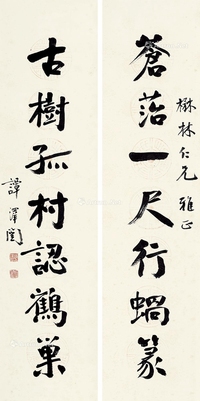 楙林仁兄雅正
蒼菭一尺行蝸篆
古樹孤村認鶴巢
譚澤闓